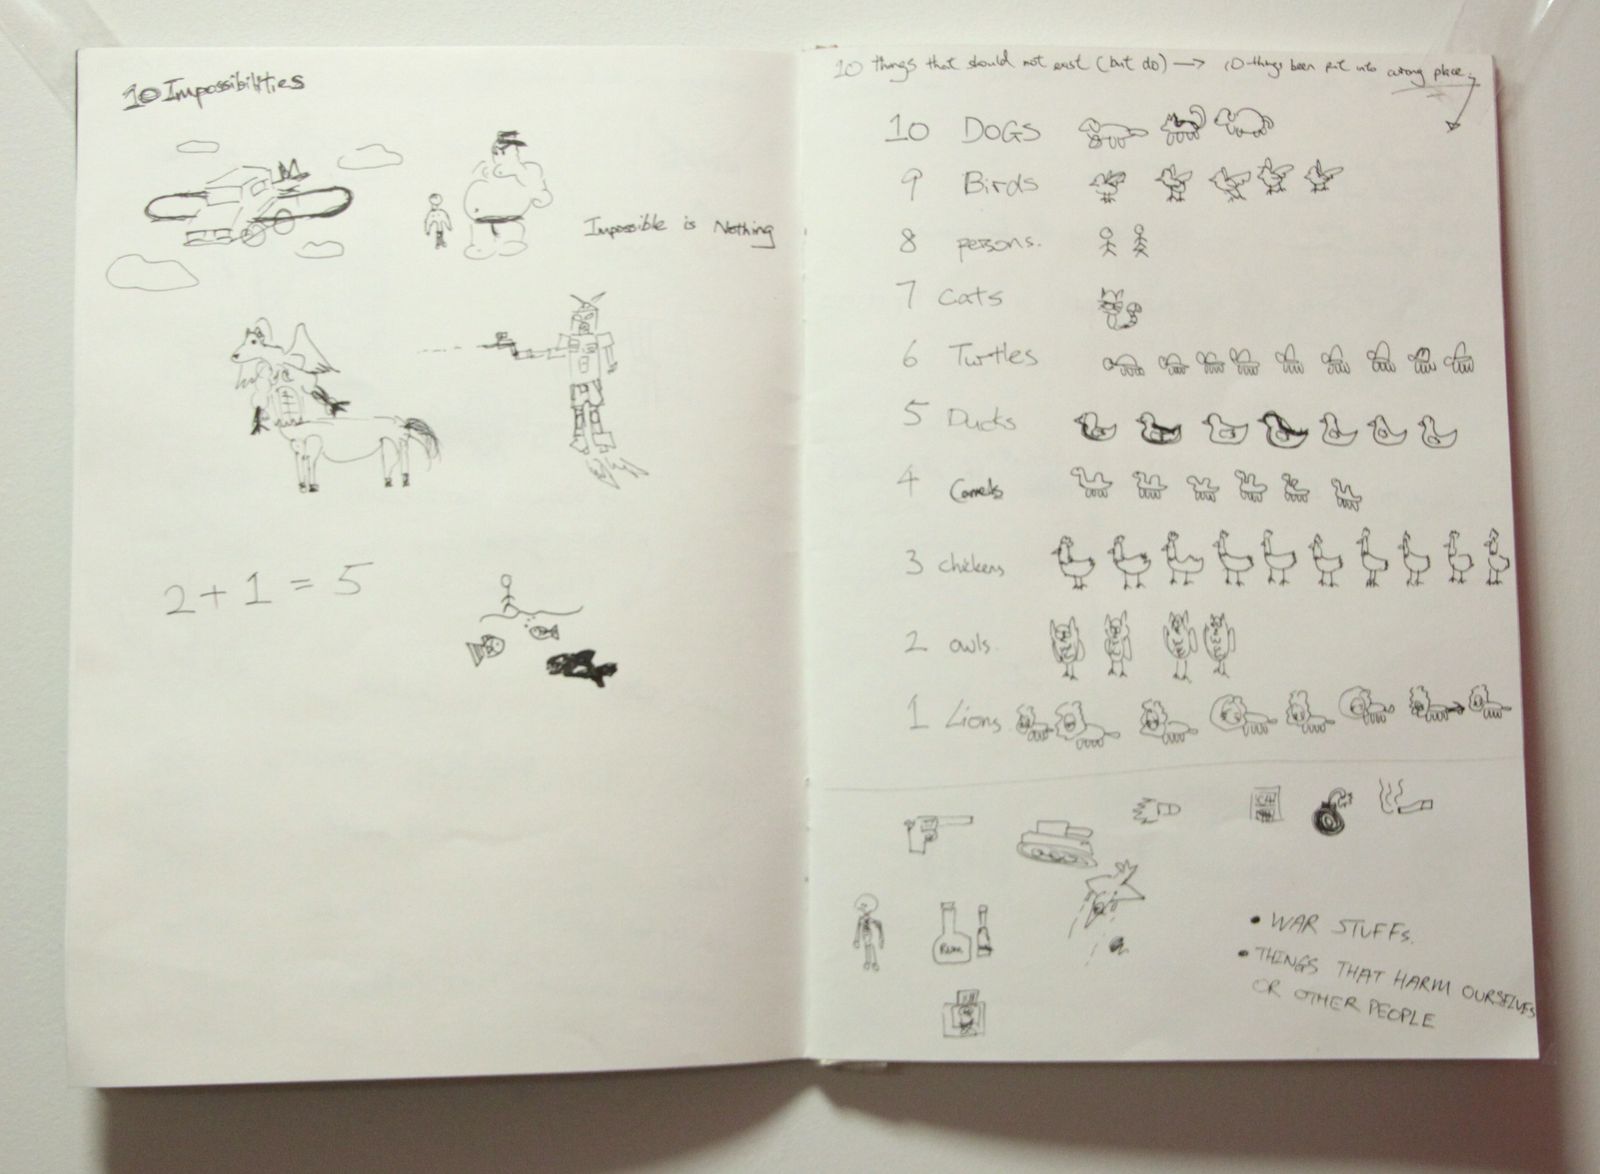 10 Impossibilities
Impossible is Nothing
2 + 1 = 5
10 things that should not exist (but do) → 10 things been put into wrong place.
10 DOGS
9 Birds
8 persons.
7 Cats
6 Turtles
5 Ducks
4 Camels
3 chickens
2 owls.
1 Lions
Rum
• WAR STUFFS.
• THINGS THAT HARM OURSELVES
OR OTHER PEOPLE